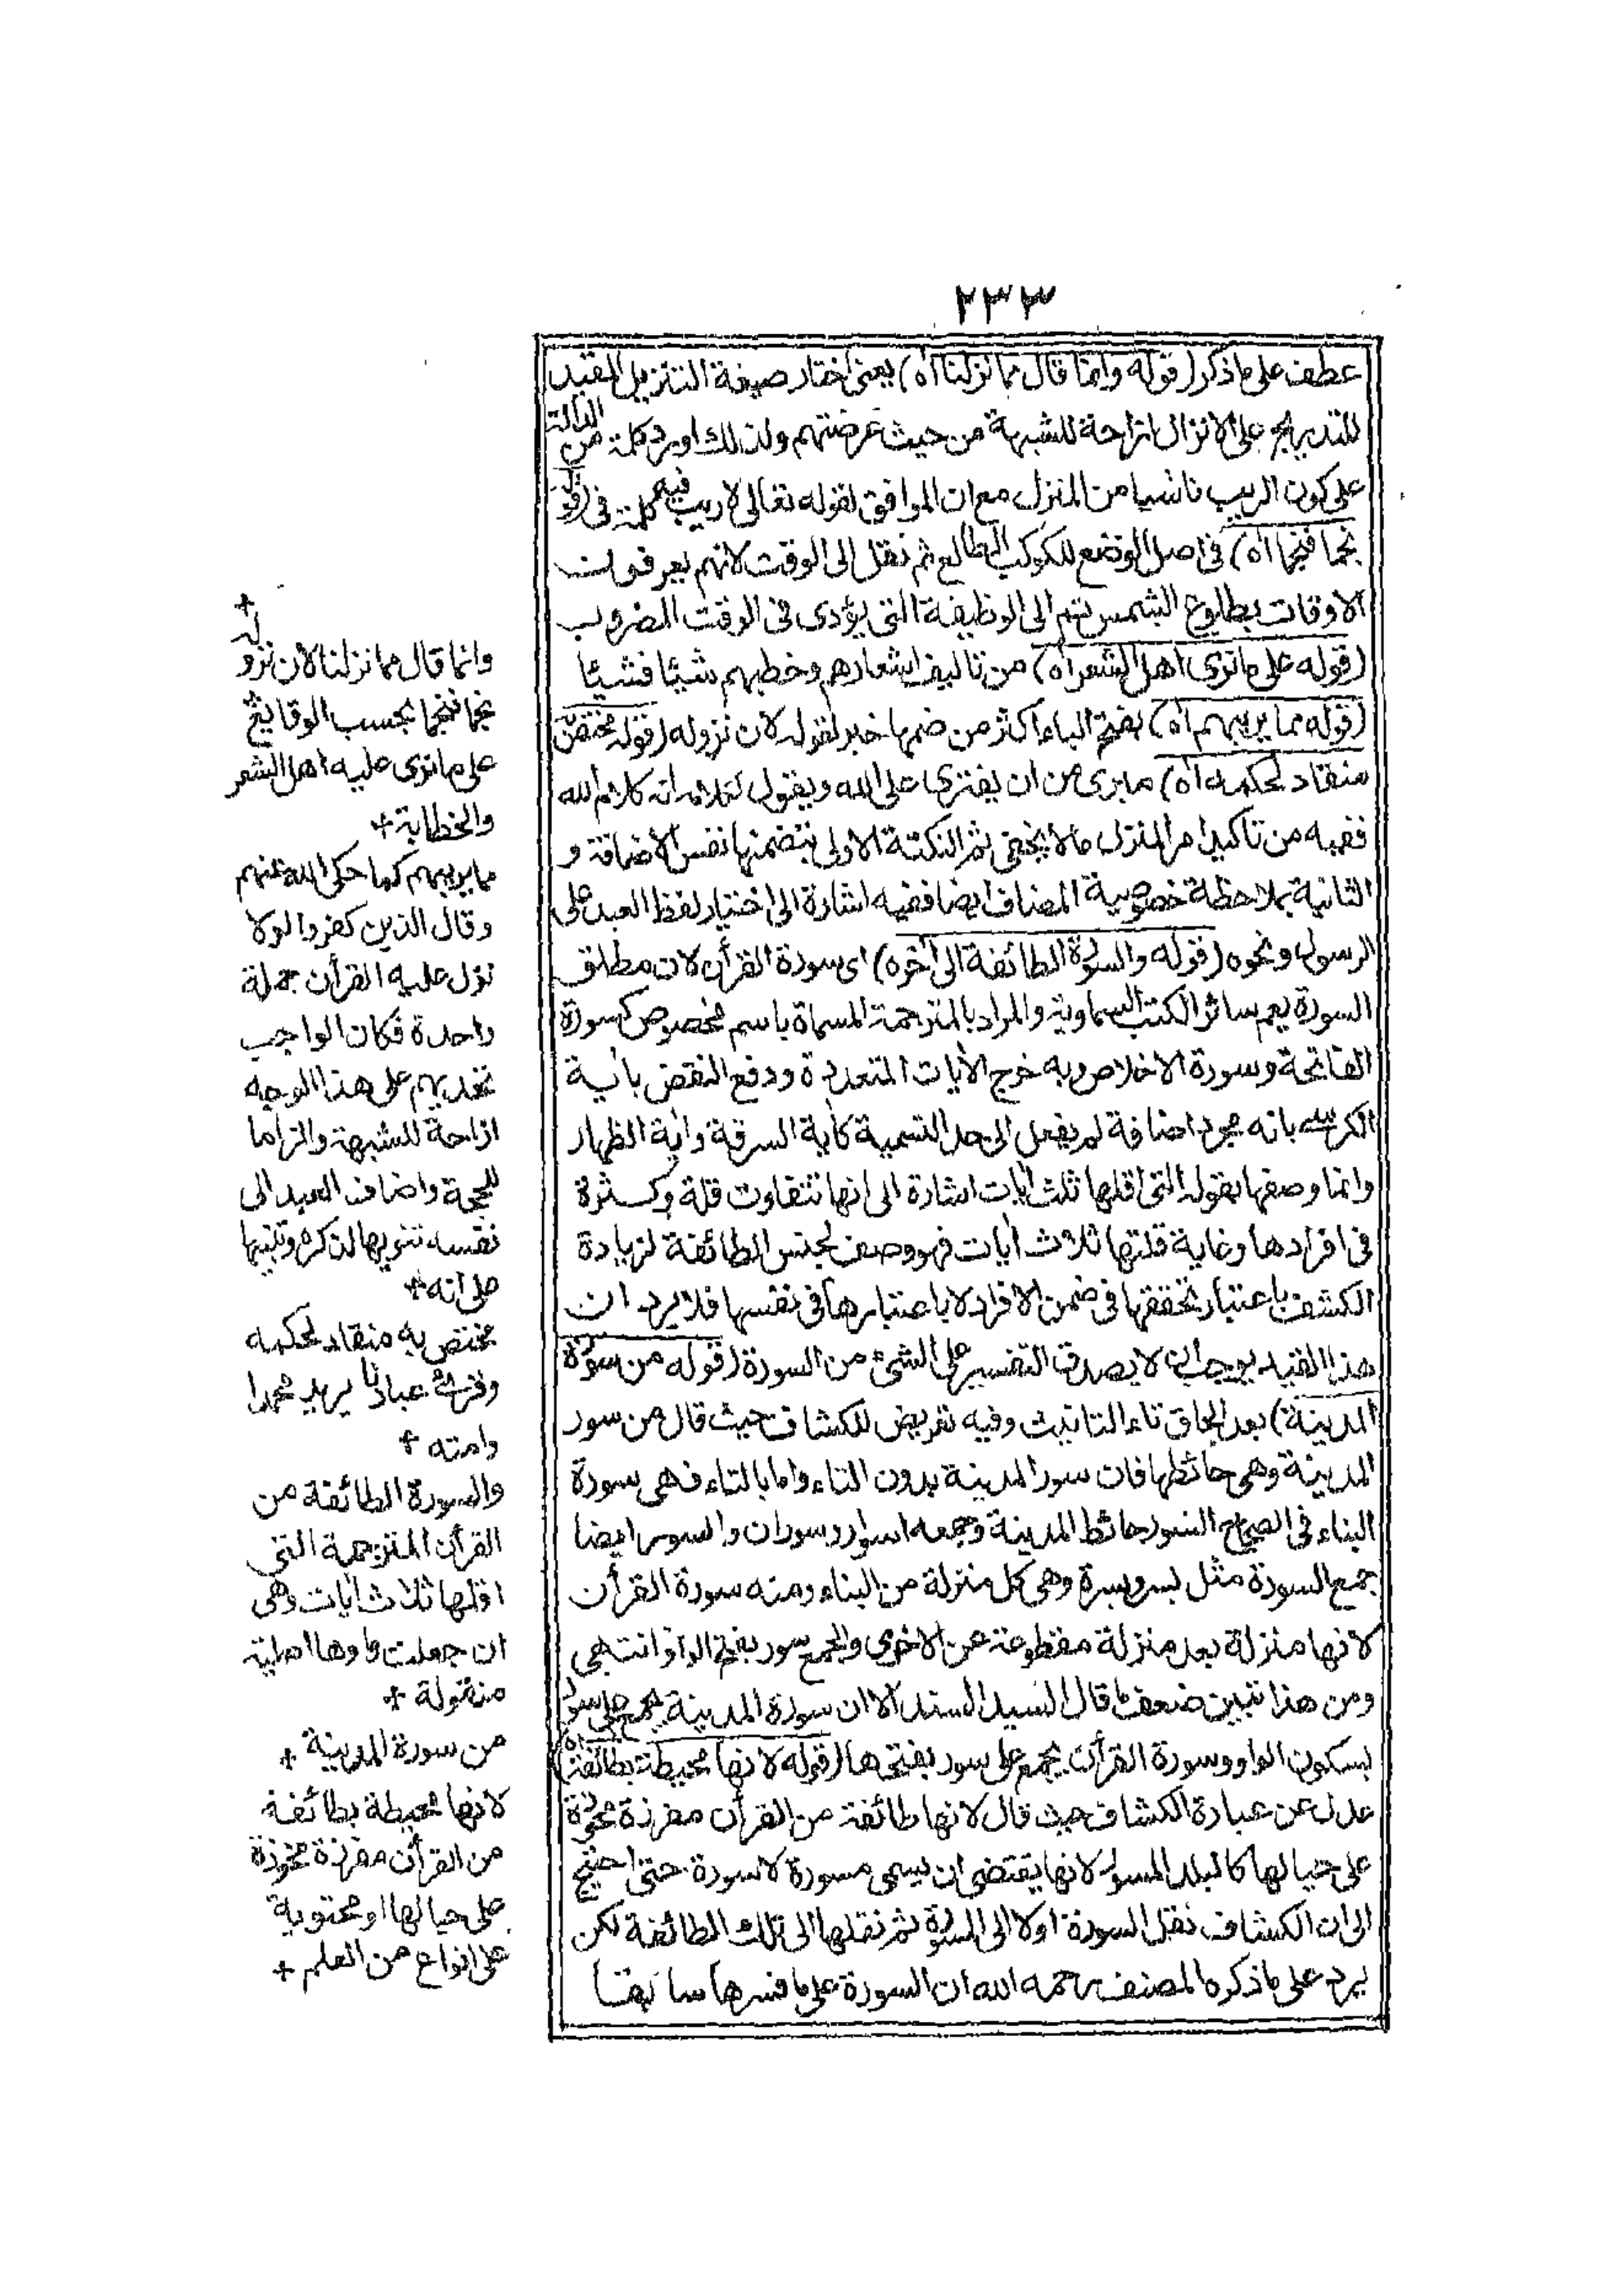 ٢٣٣
عطف على ما ذكر (قوله وانما قال مما نزلنا اه) يعنى اختار صيغة التنزيل المفيد
للتدريج على الانزال ازاحة للشبهة من حيث عرضتهم ولذلك اورد كلمة من الدالة
على كون الريب ناشيا من المنزل مع ان الموافق لقوله تعالى لا ريب فيه كلمة فى (قوله
نجما فنجما اه) فى اصل الوضع للكوكب الطالع ثم نقل الى الوقت لانهم يعرفون
الاوقات بطلوع الشمس ثم الى الوظيفة التى يؤدى فى الوقت المضروب
(قوله على ما ترى اهل الشعر اه) من تاليف اشعارهم وخطبهم شيئا فشيئا
(قوله مما يريبهم اه) بفتح الياء اكثر من ضمها خبر لقوله لان نزوله (قوله مختص به
منقاد لحكمه اه) مابرى من ان يفترى على الله ويقول لكلامه انه كلام الله
ففيه من تاكيد امر المنزل ما لا يخفى ثم النكتة الاولى يتضمنها نفس الاضافة و
الثانية بملاحظة خصوصية المضاف ايضا ففيه اشارة الى اختيار لفظ العبد على
الرسول ونحوه (قوله والسورة الطائفة الى اخره) اى سورة القرأن لان مطلق
السورة يعم سائر الكتب السماوية والمراد بالمترجمة المسماة باسم مخصوص كسورة
الفاتحة وسورة الاخلاص وبه خرج الأيات المتعددة ودفع النقض بأية
الكرسى بانه مجرد اضافة لم يفعل الى حد التسمية كأية السرقة وأية الظهار
وانما وصفها بقوله التى اقلها ثلث أيات اشارة الى انها تتفاوت قلة وكثرة
فى افرادها وغاية قلتها ثلاث أيات فهو وصف لجنس الطائفة لزيادة
الكشف باعتبار تحققها فى ضمن الافراد لا باعتبارها فى نفسها فلا يرد ان
هذا القيد يوجب ان لا يصدق التفسير على الشئ من السورة (قوله من سورة
المدينة) بعد الحاق تاء التانيث وفيه تعريض للكشاف حيث قال من سور
المدينة وهى حائطها فان سور المدينة بدون التاء واما بالتاء فهى سورة
البناء فى الصحاح السور حائط المدينة وجمعه اسوار وسوران والسور ايضا
جمع السورة مثل بسر وبسرة وهى كل منزلة من البناء ومنه سورة القرأن
لانها منزلة بعد منزلة مقطوعة عن الاخرى والجمع سور بفتح الواو انتهى
ومن هذا تبين ضعف ما قال السيد السند الا ان سورة المدينة يجمع على سور
بسكون الواو وسورة القرأن يجمع على سور بفتحها (قوله لانها محيطة بطائفة اه)
عدل عن عبارة الكشاف حيث قال لانها طائفة من القرأن مفرزة محوزة
على حيالها كالبلد المسور لانها يقتضى ان يسمى مسورة لا سورة حتى احتيج
الى ان الكشاف نقل السورة اولا الى المسورة ثم نقلها الى تلك الطائفة لكن
يرد على ما ذكره المصنف رحمه الله ان السورة على ما فسرها سابقا
وانما قال مما نزلنا لان نزوله
نجما فنجما بحسب الوقايع
على ما ترى عليه اهل الشعر
والخطابة +
مما يريبهم كما حكى الله عنهم
وقال الذين كفروا لولا
نزل عليه القرأن جملة
واحدة فكان الواجب
تحديهم على هذا الوجه
ازاحة للشبهة والزاما
للحجة واضاف العبد الى
نفسه تنويها لذكره وتنبيها
على انه +
مختص به منقاد لحكمه
وقرئ عبادنا يريد محمدا
وامته +
والسورة الطائفة من
القرأن المترجمة التى
اقلها ثلاث أيات وهى
ان جعلت واوها اصلية
منقولة +
من سورة المدينة +
لانها محيطة بطائفة
من القرأن مفرزة محوزة
على حيالها او محتوية
على انواع من العلم +